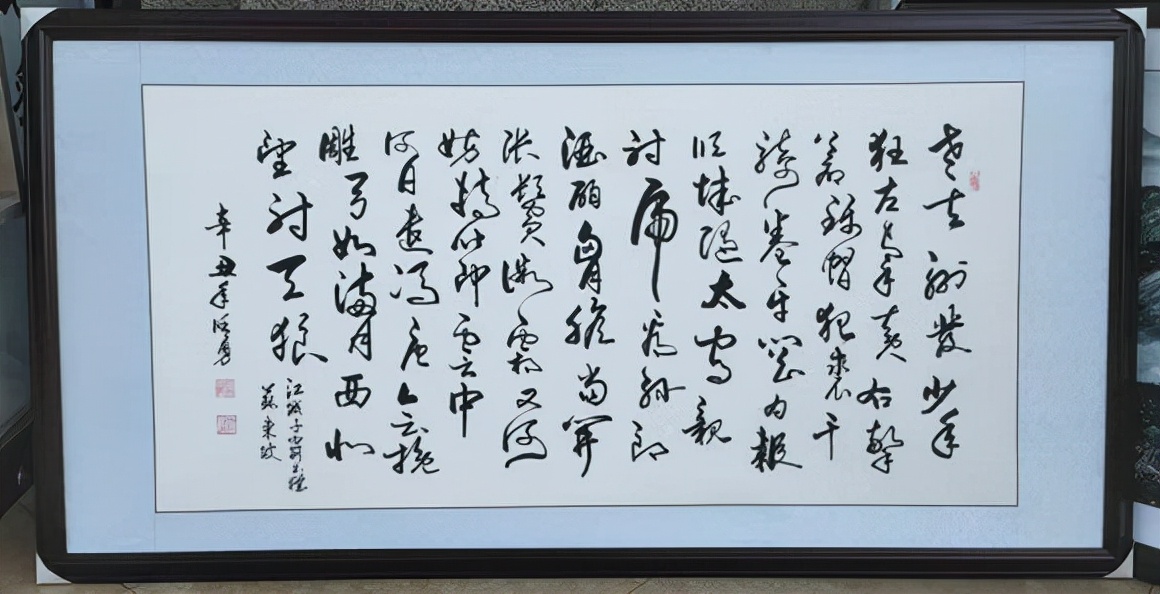 老夫聊發少年
狂左牽黃右擎
蒼錦帽貂裘千
騎卷平岡為報
傾城隨太守親
射虎看孫郎
酒酣胸膽尚開
張鬢微霜又何
妨持節雲中
何日遣馮唐會挽
雕弓如滿月西北
望射天狼
江城子密州出獵
蘇東坡
辛丑年